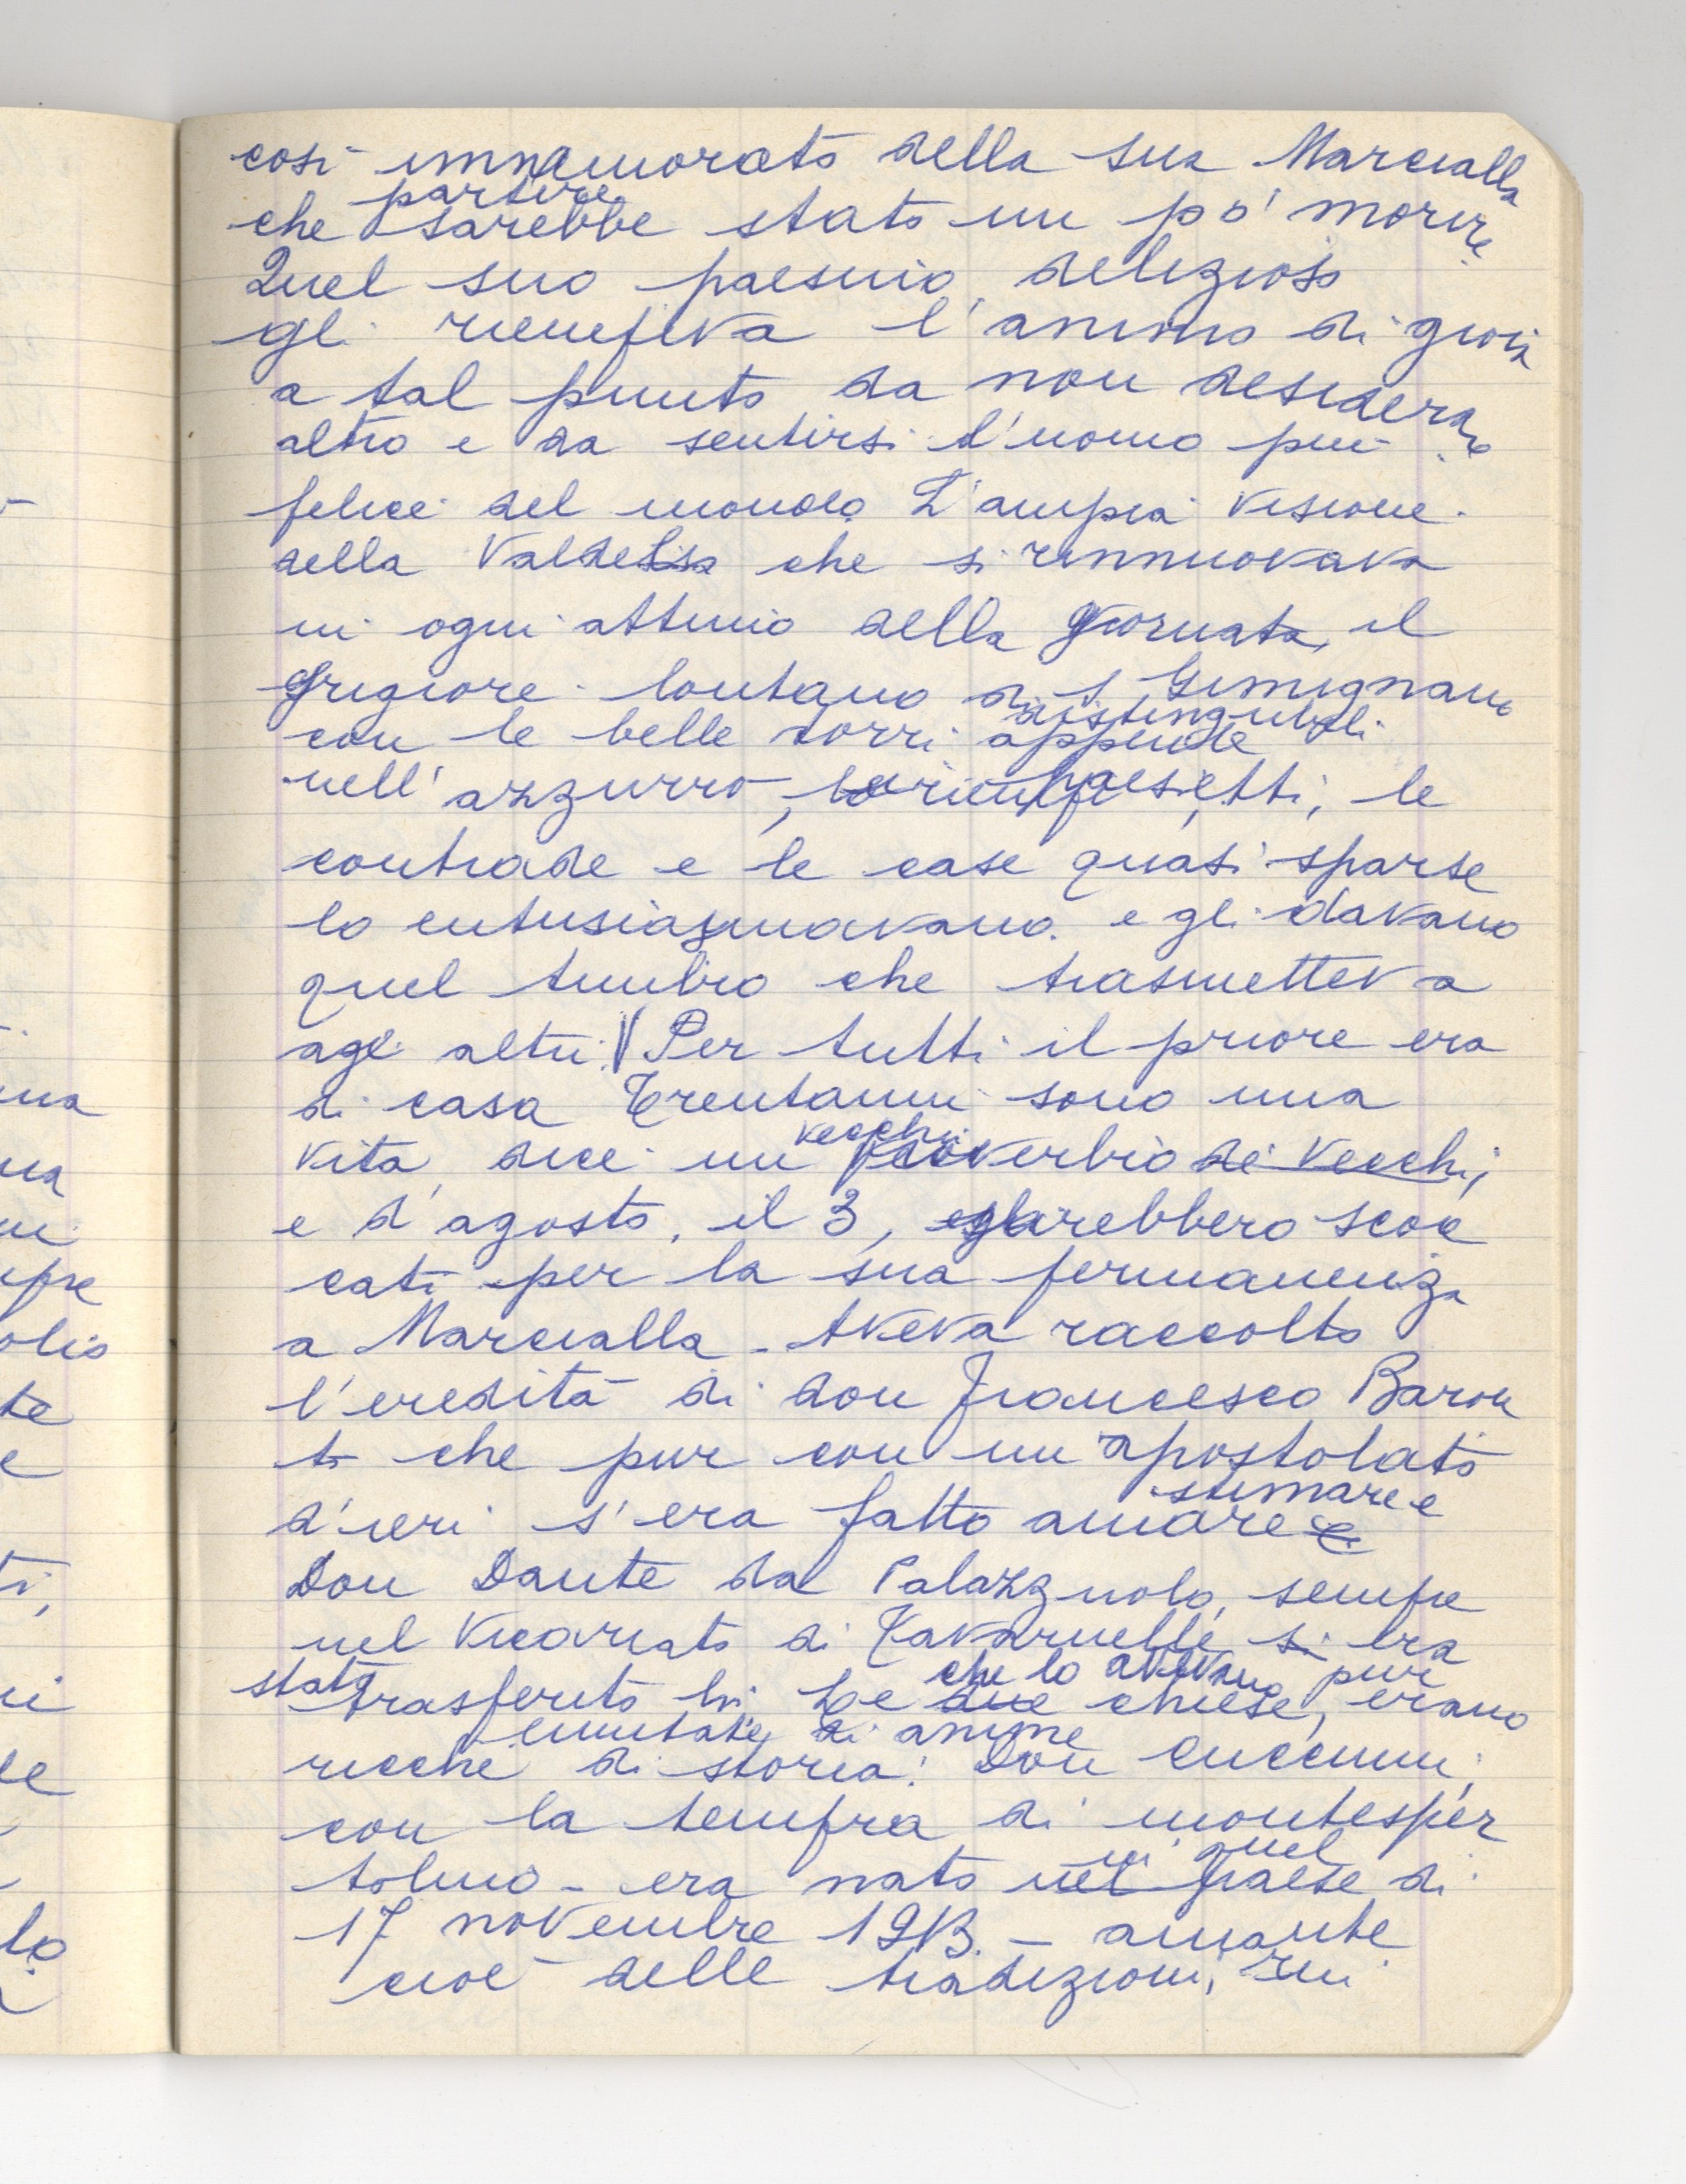 così innamorato della sua Marcialla
che partire sarebbe stato un pò' morire
Quel suo paesino, delizioso
gli riempiva l'animo di gioia
a tal punto da non desiderare
altro e da sentirsi l'uomo più
felice del mondo. L'ampia visione
della Valdelsa che si rinnuovava
in ogni attimo della giornata, il
grigiore lontano di S. Gimignano
con le belle torri appena distinguibili
nell'azzurro, paesetti, le
contrade e le case quasi sparse
lo entusiasmavano e gli davano
quel timbro che trasmetteva
agli altri. Per tutti il priore era
di casa Trentanni sono una
vita, dice un vecchio proverbio di vecchi,
e d'agosto, il 3, sarebbero scoc
cati per la sua permanenza
a Marcialla. Aveva raccolto
l'eredità di don Francesco Baron
ti che pur con un apostolato
d'ieri s'era fatto stimare e amare e
Don Dante da Palazzuolo, sempre
nel Vicariato di Tavarnelle, si era
stato trasferito lì. Le due chiese, che lo avevano pur
erano
ricche di storia. Don Cuccuini,
con la tempra di montesper
tolino - era nato nel in quel paese di
17 novembre 1913. - amante
cioè delle tradizioni,
ma
na
olio
te
e
lo